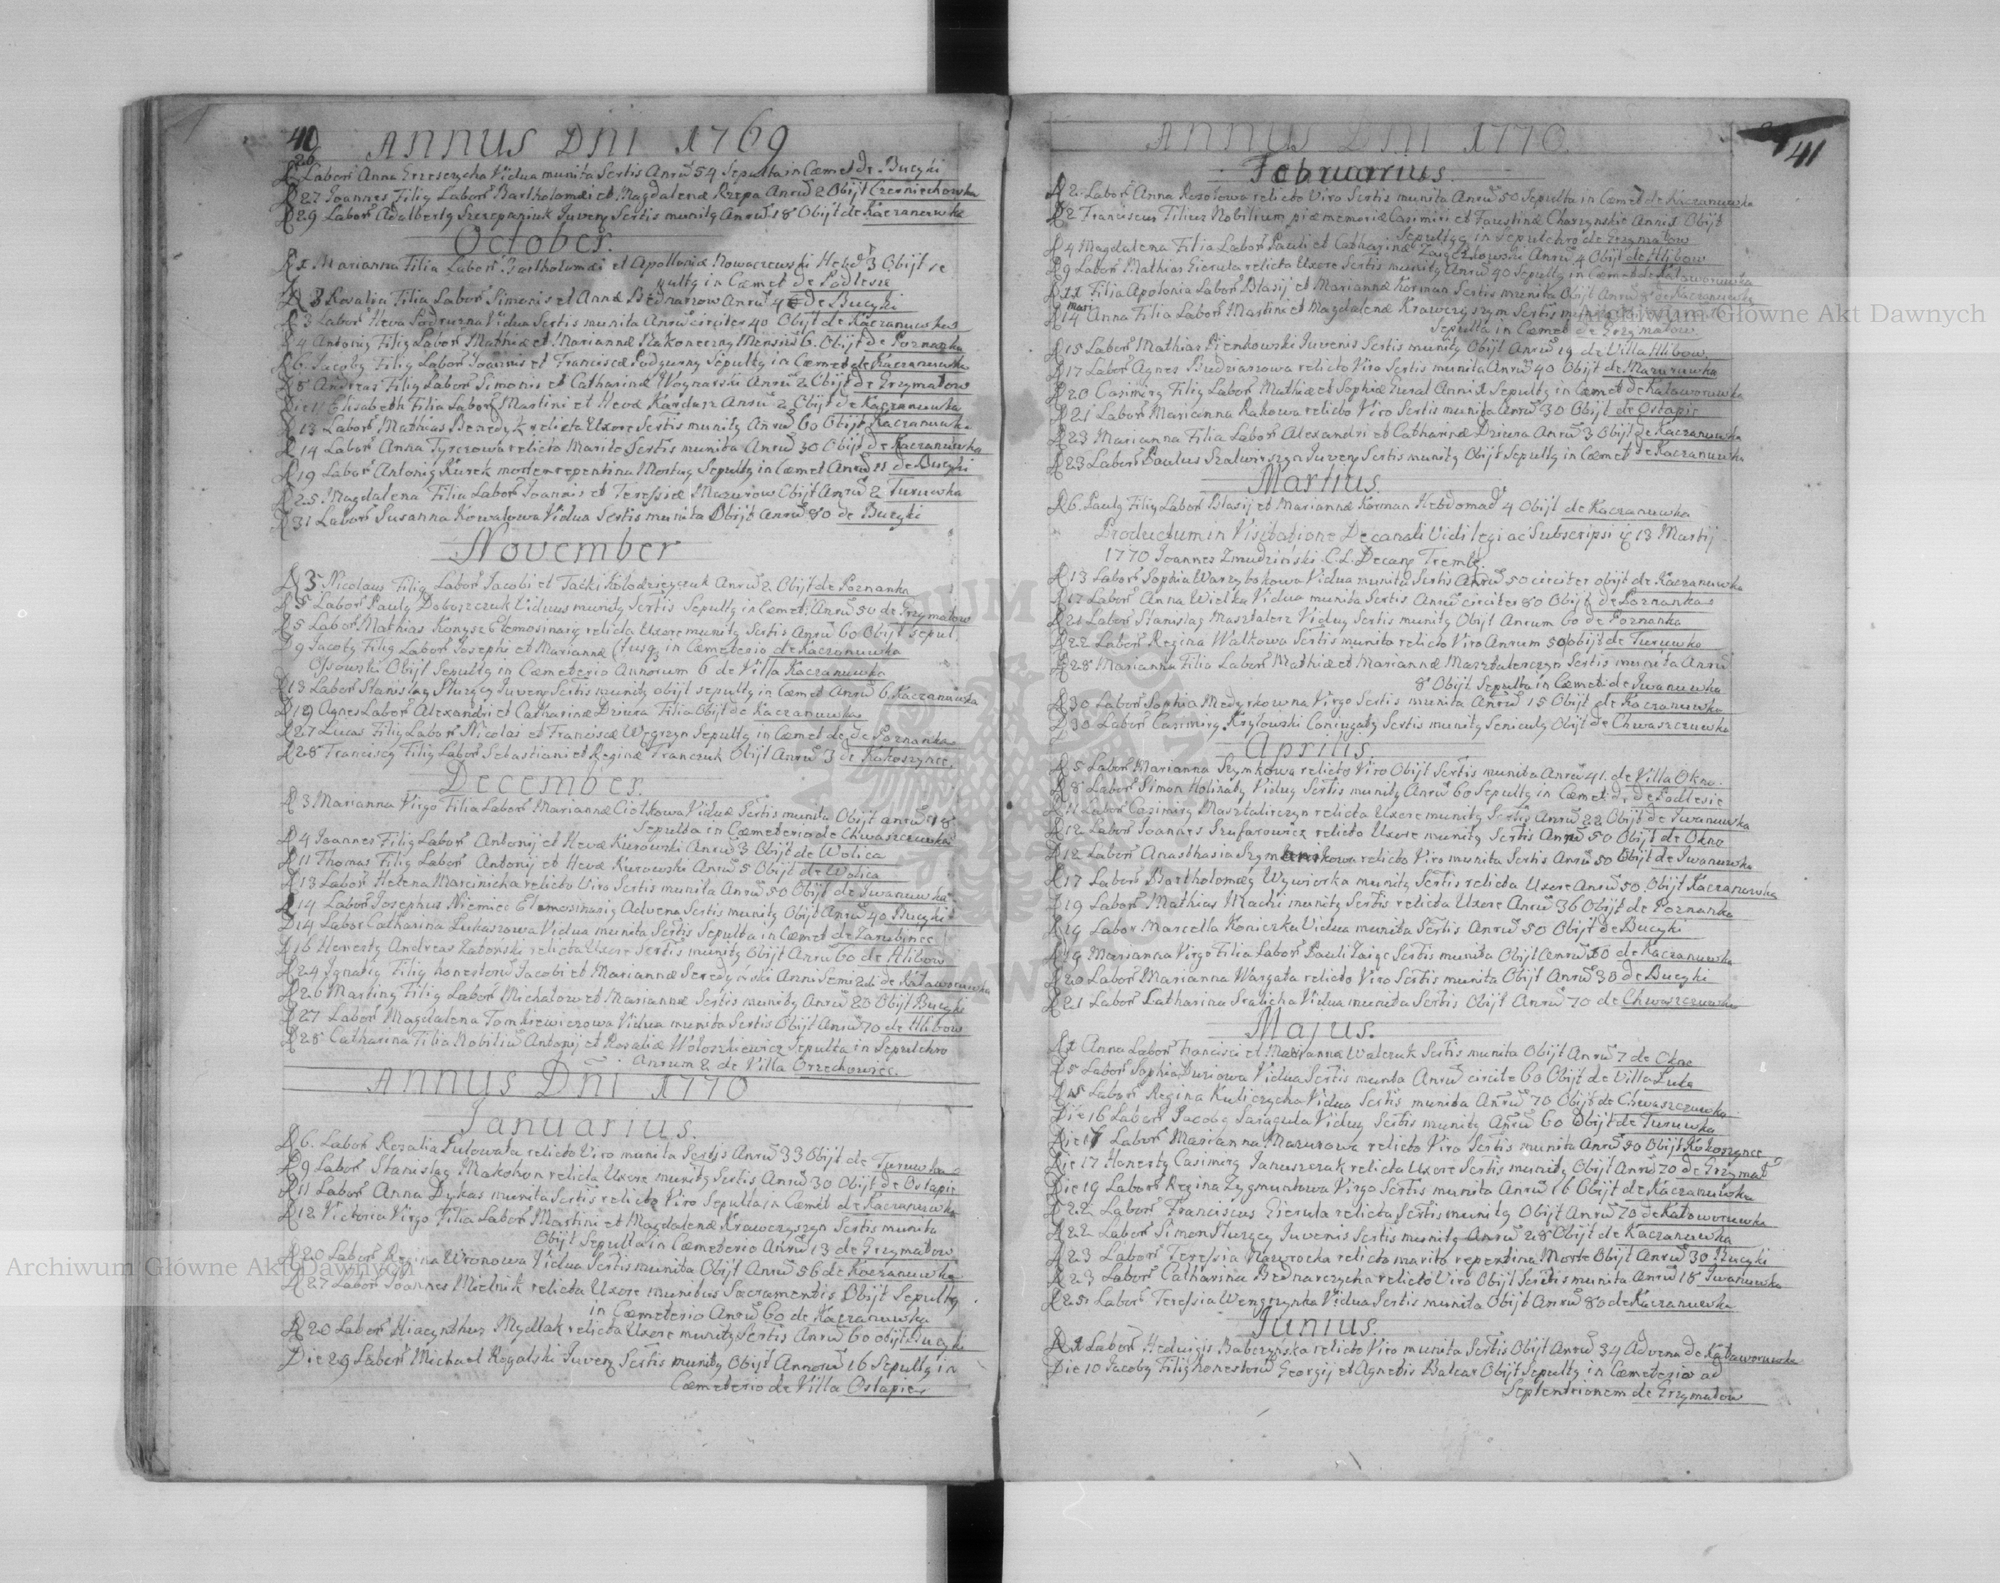 40 Annus Dni 1769
D 26 Labor Anna Grzeszycha Vidua munita Scrtis Anrū 54 Sepulta in Cæmet de Bucyki
D 27 Joannes Filig Labor Bartholomæi et Magdalenæ Rzepa Anrū 2 Obijt Czerniechowka
D 29 Labor Adalbertg Szczepaniuk Juvenis Scrtis munitg Anrū 18 Obijt de Kaczanuwka
October.
D 1 Marianna Filia Labor Bartholomæi et Apolloniæ Nowaczewski Hebd 3 Obijt se
pultg in Cæmet de Podlesie
D 3 Rosalia Filia Labor Simonis et Annæ Bednarzow Anrū 4 de Bucyki
D 3 Labor Heva Vidua Scrtis munita Anrū circiter 40 Obijt de Kaczanuwka
D 4 Antonig Filig Labor Mathiæ et Mariannæ Nakoneczny Mensiū 6 Obijt de Poznanka
D 6 Jacobg Filig Labor Joannis et Franciscæ Podgurny Sepultg in Cæmet de Kaczanuwka
D 8 Andreas Filig Labor Simonis et Catharinæ Woynarski Anrū 2 Obijt de Grzymałow
Die 11 Elisabeth Filia Labor Martini et Hevæ Kardasz Anrū 2 Obijt de Kaczanuwka
D 13 Labor Mathias Benedyk relicta Uxore Scrtis munitg Anrū 60 Obijt Kaczanuwka
D 14 Labor Anna Tyrcrowa relicto Marito Scrtis munita Anrū 30 Obijt de Kaczanuwka
D 19 Labor Antonig Kurek morte repentina Mortug Sepultg in Cæmet Anrū de Bucyki
D 25 Magdalena Filia Labor Joannis et Teressiæ Mazurow Obijt Anrū 2 Turuwka
D 31 Labor Susanna Kowalowa Vidua Scrtis munita Obijt Anrū 80 de Bucyki
November
D 3 Nicolaus Filig Labor Jacobi et Kołodzieyczuk Anrū 2 Obijt de Poznanka
D 5 Labor Paulg Doboszczuk Viduus munitg Scrtis Sepultg in Cæmet Anrū 50 de Grzymałow
D 5 Labor Mathias Konysz Elemosinarig relicta Uxore munitg Scrtis Anrū 60 Obijt Sepul
D 9 Jacobg Filig Labor Josephi et Mariannæ (tusq in Cæmeterio de Kaczanuwka
Ossowski Obijt Sepultg in Cæmeterio Annorum 6 de Villa Kaczanuwka
D 13 Labor Stanislag Sturzcy Juvenis Scrtis munitg obijt sepultg in Cæmet Anrū Kaczanuwka
D 19 Agnes Labor Alexandri et Catharinæ Dziura Filia Obijt de Kaczanuwka
D 27 Lucas Filig Labor Nicolai et Franciscæ Węgrzyn Sepultg in Cæmet de Poznanka
D 28 Franciscg Filig Labor Sebastiani et Reginæ Franczuk Obijt Anrū 3 de Kokoszynce
December.
D 3 Marianna Virgo Filia Labor Mariannæ Ciołkowa Viduæ Scrtis munita Obijt anrū 18
Sepulta in Cæmeterio de Chwaszczuwka
D 4 Joannes Filig Labor Antonij et Hevæ Kurowski Anrū 3 Obijt de Wolica
D 11 Thomas Filig Labor Antonij et Hevæ Kurowski Anrū 5 Obijt de Wolica
D 13 Labor Helena Marcinicha relicto Viro Scrtis munita Anrū 50 Obijt de Iwanuwka
D 14 Labor Josephus Niemiec Elemosinarig Advena Scrtis munitg Obijt Anrū 40 Bucyki
D 14 Labor Catharina Łukaszowa Vidua munita Scrtis Sepulta in Cæmet de Zarubince
D 16 Honestg Andreas Zaborski relicta Uxore Scrtis munitg Obijt Anrū 60 de Hlibow
D 24 Ignatig Filig honestorū Jacobi et Mariannæ Anni Semi de Kaławoruwka
D 26 Marting Filig Labor Michałow et Mariannæ Scrtis munitg Anrū 20 Obijt Bucyki
D 27 Labor Magdalena Tomkiewiczowa Vidua munita Scrtis Obijt Anrū 70 de Hlibow
D 28 Catharina Filia Nobiliū Antonij et Rosaliæ Wołoszkiewicz Sepulta in Sepulchro
Anrum 2 de Villa Orzechowiec
Annus Dni 1770
Januarius.
D 6. Labor Rosalia relicto Viro munita Scrtis Anrū 33 Obijt de Turuwka
D 9 Labor Stanislag Makohon relicta Uxore munitg Scrtis Anrū 30 Obijt de Ostapie
D 11 Labor Anna Dykas munita Scrtis relicto Viro Sepulta in Cæmet de Kaczanuwka
D 12 Victoria Virgo Filia Labor Martini et Magdalenæ Krawczyszyn Scrtis munita
Obijt Sepulta in Cæmeterio Anrū 13 de Grzymałow
D 20 Labor Regina Wronowa Vidua Scrtis munita Obijt Anrū 56 de Kaczanuwka
D 27 Labor Joannes Mielnik relicta Uxore munibus Sacramentis Obijt Sepultg
in Cæmeterio Anrū 60 de Kaczanuwka
D 20 Labor Hiacynthus Mydlak relicta Uxore munitg Scrtis Anrū 60 obijt Bucyki
Die 29 Labor Michael Rogalski Juvenis Scrtis munitg Obijt Annorū 16 Sepultg in
Cæmeterio de Villa Ostapie
Annus Dni 1770. 41
Februarius.
D 2 Labor Anna Kozołowa relicto Viro Scrtis munita Anrū 50 Sepulta in Cæmet de Kaczanuwka
D 2 Franciscus Filius Nobilium piæ memoriæ Casimiri et Faustinæ Charzynskie Annis Obijt
Sepultg in Sepulchro de Grzymałow
D 4 Magdalena Filia Labor Pauli et Catharinæ Anrū 4 Obijt de Hlibow
D 9 Labor Mathias Gieruła relicta Uxore Scrtis munitg Anrū 40 Sepultg in Cæmet de Kaławoruwka
D 11 Filia Apolonia Labor Blasij et Mariannæ Korman Scrtis munita Obijt Anrū 8 de Kaczanuwka
D 14 Mari Anna Filia Labor Martini et Magdalenæ Krawczyszyn Scrtis munita
Sepulta in Cæmet de Grzymałow
D 15 Labor Mathias Pienkowski Juvenis Scrtis munitg Obijt Anrū 19 de Villa Hlibow
D 17 Labor Agnes Budziarzowa relicto Viro Scrtis munita Anrū 40 Obijt de Mazuruwka
D 20 Casimirg Filig Labor Mathiæ et Sophiæ Gural Anni 1 Sepultg in Cæmet de Kaławoruwka
D 21 Labor Marianna Rakowa relicto Viro Scrtis munita Anrū 30 Obijt de Ostapie
D 23 Marianna Filia Labor Alexandri et Catharinæ Dziura Anrū 3 Obijt de Kaczanuwka
D 23 Labor Paulus Szalwirszyn Juvenis Scrtis munitg Obijt Sepultg in Cæmet de Kaczanuwka
Martius.
D 6. Paulg Filig Labor Blasij et Mariannæ Korman Hebdomad 4 Obijt de Kaczanuwka
Productum in Visitatione Decanali Vidi legi ac Subscripsi 13 Martij
1770 Joannes Zmudziński C.L. Decang Tremb.
D 13 Labor Sophia Warzybokowa Vidua munita Scrtis Anrū 50 circiter obijt de Kaczanuwka
D 17 Labor Anna Wielka Vidua munita Scrtis Anrū circiter 80 Obijt de Poznanka
D 21 Labor Stanislag Masztalerz Vidug Scrtis munitg Obijt Anrum 60 de Poznanka
D 22 Labor Regina Walkowa Scrtis munita relicto Viro Anrum 50 obijt de Turuwka
D 28 Marianna Filia Labor Mathiæ et Mariannæ Masztalerczyn Scrtis munita Anrū
8 Obijt Sepulta in Cæmet de Iwanuwka
D 30 Labor Sophia Medyckowna Virgo Scrtis munita Anrū 15 Obijt de Kaczanuwka
D 30 Labor Casimirg Krysowski Coniugatg Scrtis munitg Seniculg Obijt de Chwaszczuwka
Aprilis.
D 5 Labor Marianna Szymkowa relicto Viro Obijt Scrtis munita Anrū 41. de Villa Okno
D 8 Labor Simon Holinaty Vidug Scrtis munitg Anrū 60 Sepultg in Cæmet de Podlesie
D 11 Labor Casimirg Masztalirczyn relicta Uxore munitg Scrtis Anrū 22 Obijt de Iwanuwka
D 12 Labor Joannes Szufarowicz relicto Uxore munitg Scrtis Anrū 50 Obijt de Okno
D 12 Labor Anasthasia relicto Viro munita Scrtis Anrū 50 Obijt de Iwanuwka
D 17 Labor Bartholomæg Wywiorka munitg Scrtis relicta Uxore Anrū 50 Obijt Kaczanuwka
D 19 Labor Mathias Machi munitg Scrtis relicta Uxore Anrū 36 Obijt de Poznanka
D 19 Labor Marcella Koniczka Vidua munita Scrtis Anrū 50 Obijt de Bucyki
D 19 Marianna Virgo Filia Labor Pauli Scrtis munita Obijt Anrū de Kaczanuwka
D 20 Labor Marianna Wargata relicto Viro Scrtis munita Obijt Anrū 38 de Bucyki
D 21 Labor Catharina Vidua munita Scrtis Obijt Anrū 70 de Chwaszczuwka
Majus.
D 1 Anna Labor Francisci et Mariannæ Walczuk Scrtis munita Obijt Anrū 7 de Okno
D 5 Labor Sophia Duziowa Vidua Scrtis munita Anrū circite 60 Obijt de Villa Łuka
D 15 Labor Regina Kuliczycha Vidua Scrtis munita Anrū 70 Obijt de Chwaszczuwka
Die 16 Labor Jacobg Saragula Vidug Scrtis munitg Anrū 60 Obijt de Turuwka
Die 17 Labor Marianna Mazurowa relicto Viro Scrtis munita Anrū 50 Obijt Kokoszynce
Die 17 Honestg Casimirg Januszczak relicta Uxore Scrtis munitg Obijt Anrū 70 de Grzymał
Die 19 Labor Regina Zygmuntowa Virgo Scrtis munita Anrū 16 Obijt de Kaczanuwka
D 22 Labor Franciscus Gieruła relicta Scrtis munitg Obijt Anrū 70 de Kaławoruwka
D 22 Labor Simon Sturzcy Juvenis Scrtis munitg Anrū 28 Obijt de Kaczanuwka
D 23 Labor Teressia Nawrocka relicto marito repentina Morte Obijt Anrū 30 Bucyki
D 23 Labor Catharina Bednarczycha relicto Viro Obijt Scrtis munita Anrū 18 Iwanuwka
D 25 Labor Teressia Wengrzynka Vidua Scrtis munita Obijt Anrū 80 de Kaczanuwka
Junius.
D 1 Labor Hedwigis Babczyńska relicto Viro munita Scrtis Obijt Anrū 34 Advena de Kaławoruwka
Die 10 Jacobg Filig honestorū Georgij et Agnetis Balcar Obijt Sepultg in Cæmeterio ad
Septentrionem de Grzymałow
Archiwum Główne Akt Dawnych
Archiwum Główne Akt Dawnych